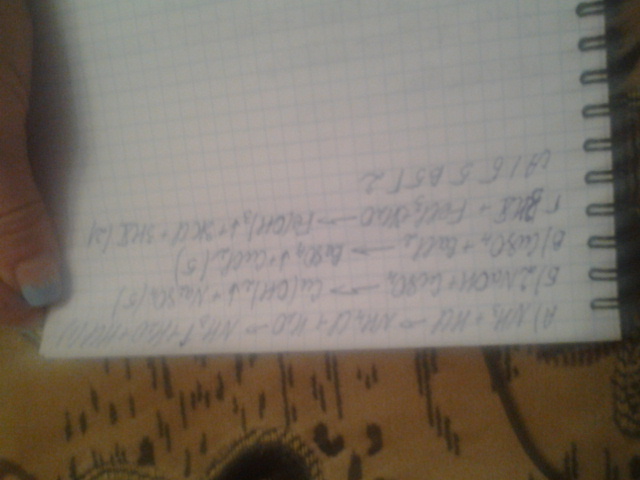 А) NH3 + HCl → NH4Cl + H2O → NH3↑ + H2O + HCl (1)
Б) 2NaOH + CuSO4 → Cu(OH)2↓ + Na2SO4 (5)
В) CuSO4 + BaCl2 → BaSO4↓ + CuCl2 (5)
FeCl3 → Fe(OH)3↓ + 3HCl
А 1 Б 5 В 5 Г 2